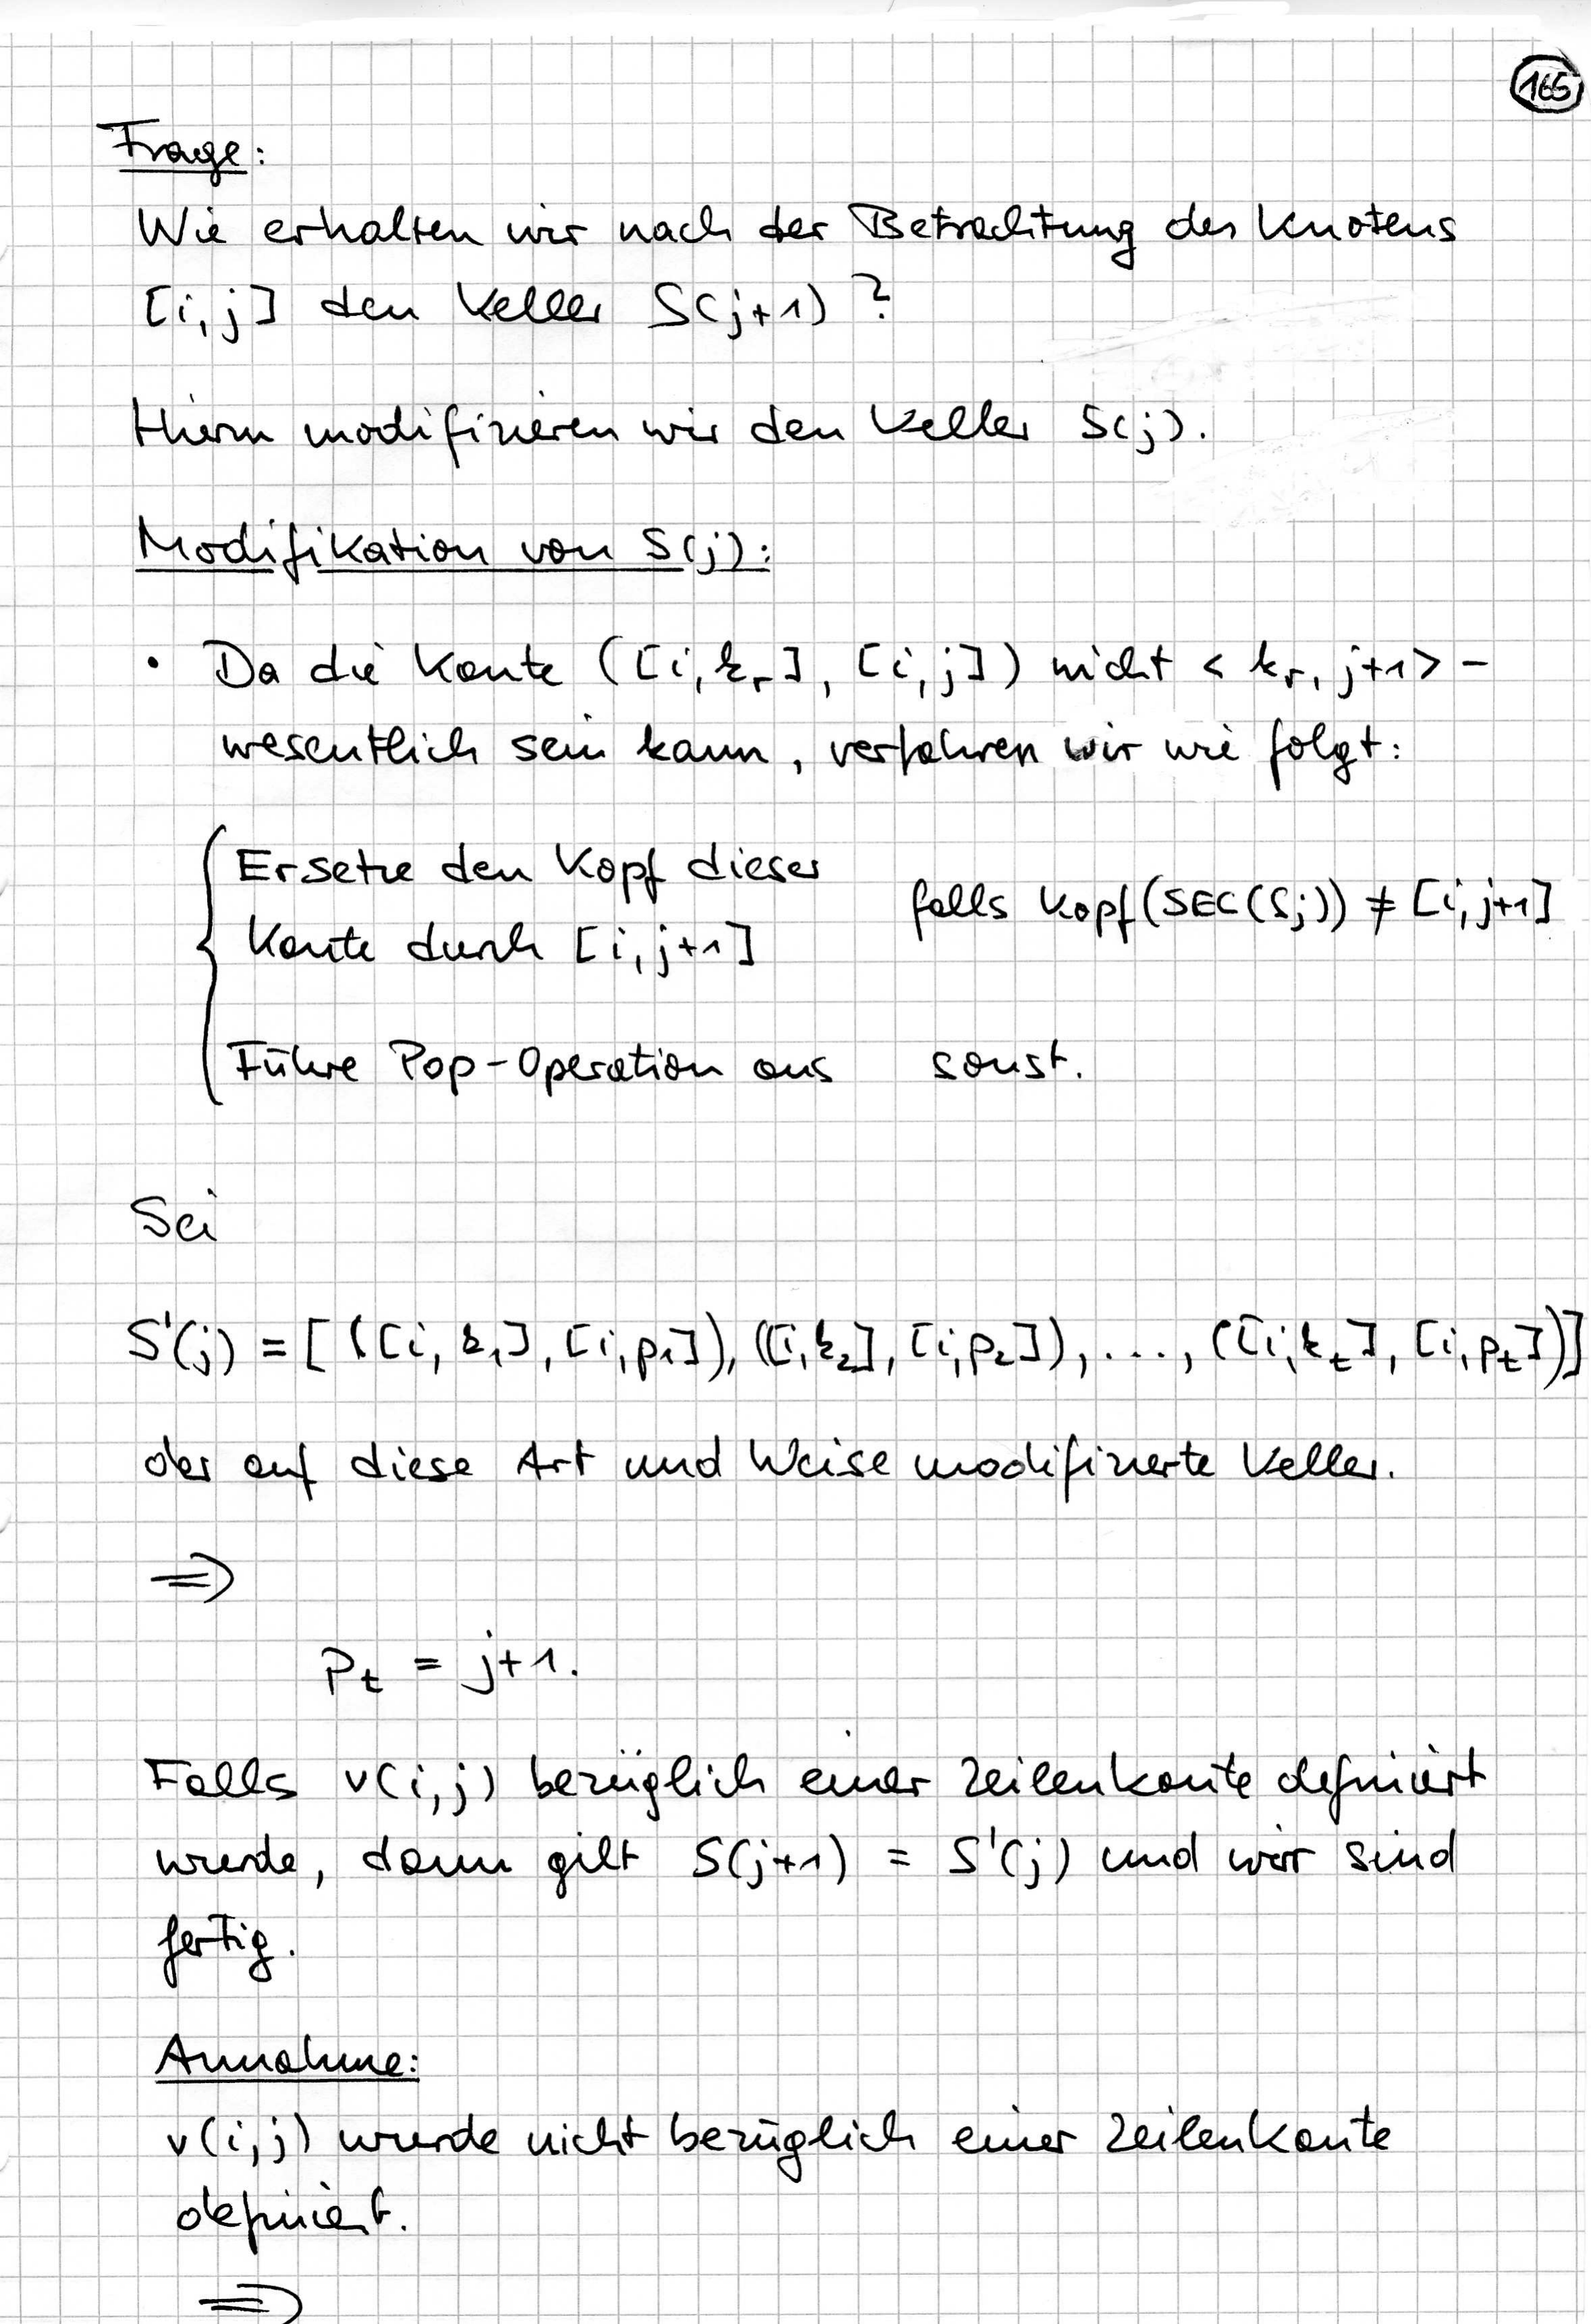 165
Frage:
Wie erhalten wir nach der Betrachtung des Knotens
[i,j] den Keller S(j+1) ?
Hierzu modifizieren wir den Keller S(j).
Modifikation von S(j):
• Da die Kante ([i,kᵣ], [i,j]) nicht < kᵣ, j+1> -
wesentlich sein kann, verfahren wir wie folgt:
Ersetze den Kopf dieser
Kante durch [i,j+1]
falls Kopf(SEC(Sj)) ≠ [i,j+1]
Führe Pop-Operation aus sonst.
Sei
S'(j) = [ ([i,k₁], [i,p₁]), ([i,k₂], [i,p₂]), ..., ([i,kₜ], [i,pₜ])]
der auf diese Art und Weise modifizierte Keller.
⇒
pₜ = j+1.
Falls v(i,j) bezüglich einer Zeilenkante definiert
wurde, dann gilt S(j+1) = S'(j) und wir sind
fertig.
Annahme:
v(i,j) wurde nicht bezüglich einer Zeilenkante
definiert.
⇒